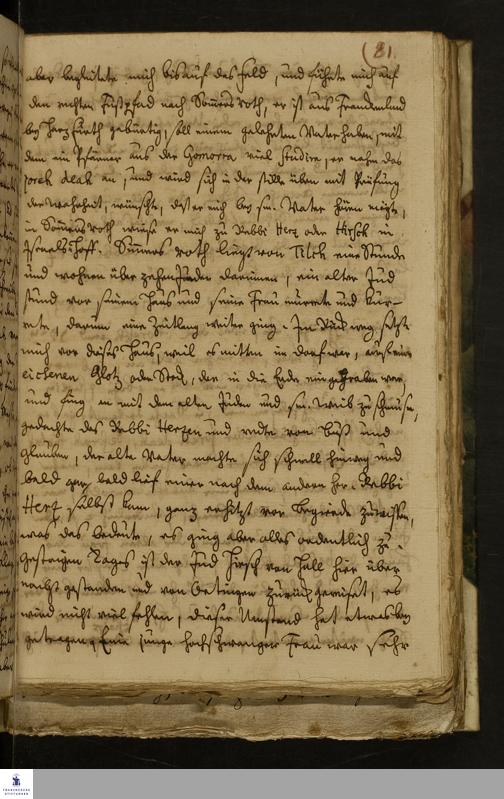 (81.
aber begleitete mich bis auf das feld, und führte mich auf
den rechten Fußpfad nach Sommersroth, er ist aus Franckenland
bey Fürth gebürtig, soll einen gelehrten Vater haben, mit
dem ein Pfarrer aus der Gemorra viel studire, er nahm das
joreh deah an, und wird sich in der stille üben mit Prüfung
der wahrheit, wünschte, daß er mich bey sn. Vater hören mögte,
in Sommersroth wiese er mich zu Rabbi Herz oder Hirsch in
Israels Hoff. Sommersroth liegt von eine Stunde
und wohnen über zehen Juden darinnen, ein alter Jud
stund vor seinem Haus und seine Frau murrete und kur-
rete, darum eine Zeitlang weiter ging. Im Rückweg setzte
mich vor dieses Haus, weil es mitten im dorf war, auf einen
eichenen Klotz oder Stock, der in die Erde eingegraben war,
und fing an mit dem alten Juden und sn. Weib zu schmusen,
gedachte des Rabbi Herzen und redte von Buß und
Glauben, der alte Vater machte sich schnell hinweg und
bald lief einer nach dem andern her. Rabbi
Herz selbst kam, ganz erhitzt vor begierde zu wissen,
was das bedeute, es ging aber alles ordentlich zu.
Gestrigen Tages ist der Jud Hirsch von Hall hier über
nacht gestanden und von Oetingen zurück gereiset, es
wird nicht viel fehlen, dieser Umstand hat etwas bey
getragen. Eine junge hochschwangere Frau war sehr
FRANCKESCHE
STIFTUNGEN